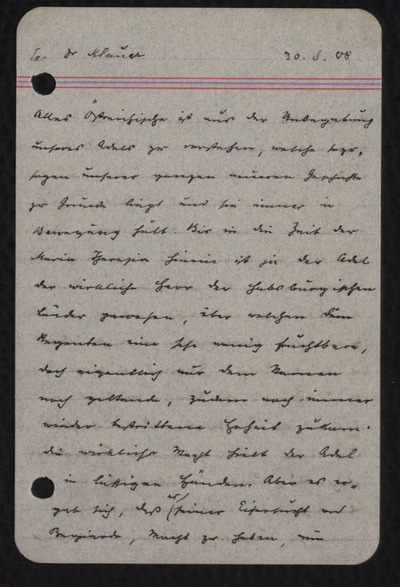 Ex. Dr Klauer 30. 8. 08
Alles Östreichische ist aus der Unbegabung
unseres Adels zu verstehen, welche sozu,
sagen unserer ganzen inneren Geschichte
zu Grunde liegt und sie immer in
Bewegung hält. Bis in die Zeit der
Maria Theresia hinein ist ja der Adel
der wirkliche Herr der habsburgischen
Länder gewesen, über welchen dem
Regenten eine sehr wenig fruchtbare,
doch eigentlich nur dem Namen
nach geltende, zudem noch immer
wieder bestrittene Hoheit zukam.
die wirkliche Macht hielt der Adel
in lässigen Händen. Aber es er-
gab sich, daß es seiner Eifersucht und
Begierde, Macht zu haben, nie